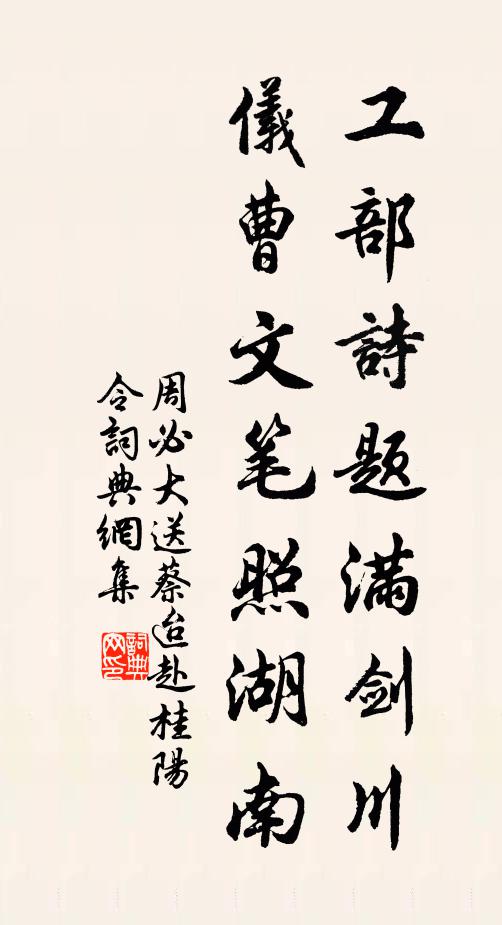 工部詩题满剑川
儀曹文笔照湖南
周必大送蔡迨赴桂陽
令詞典網集
詞典网印